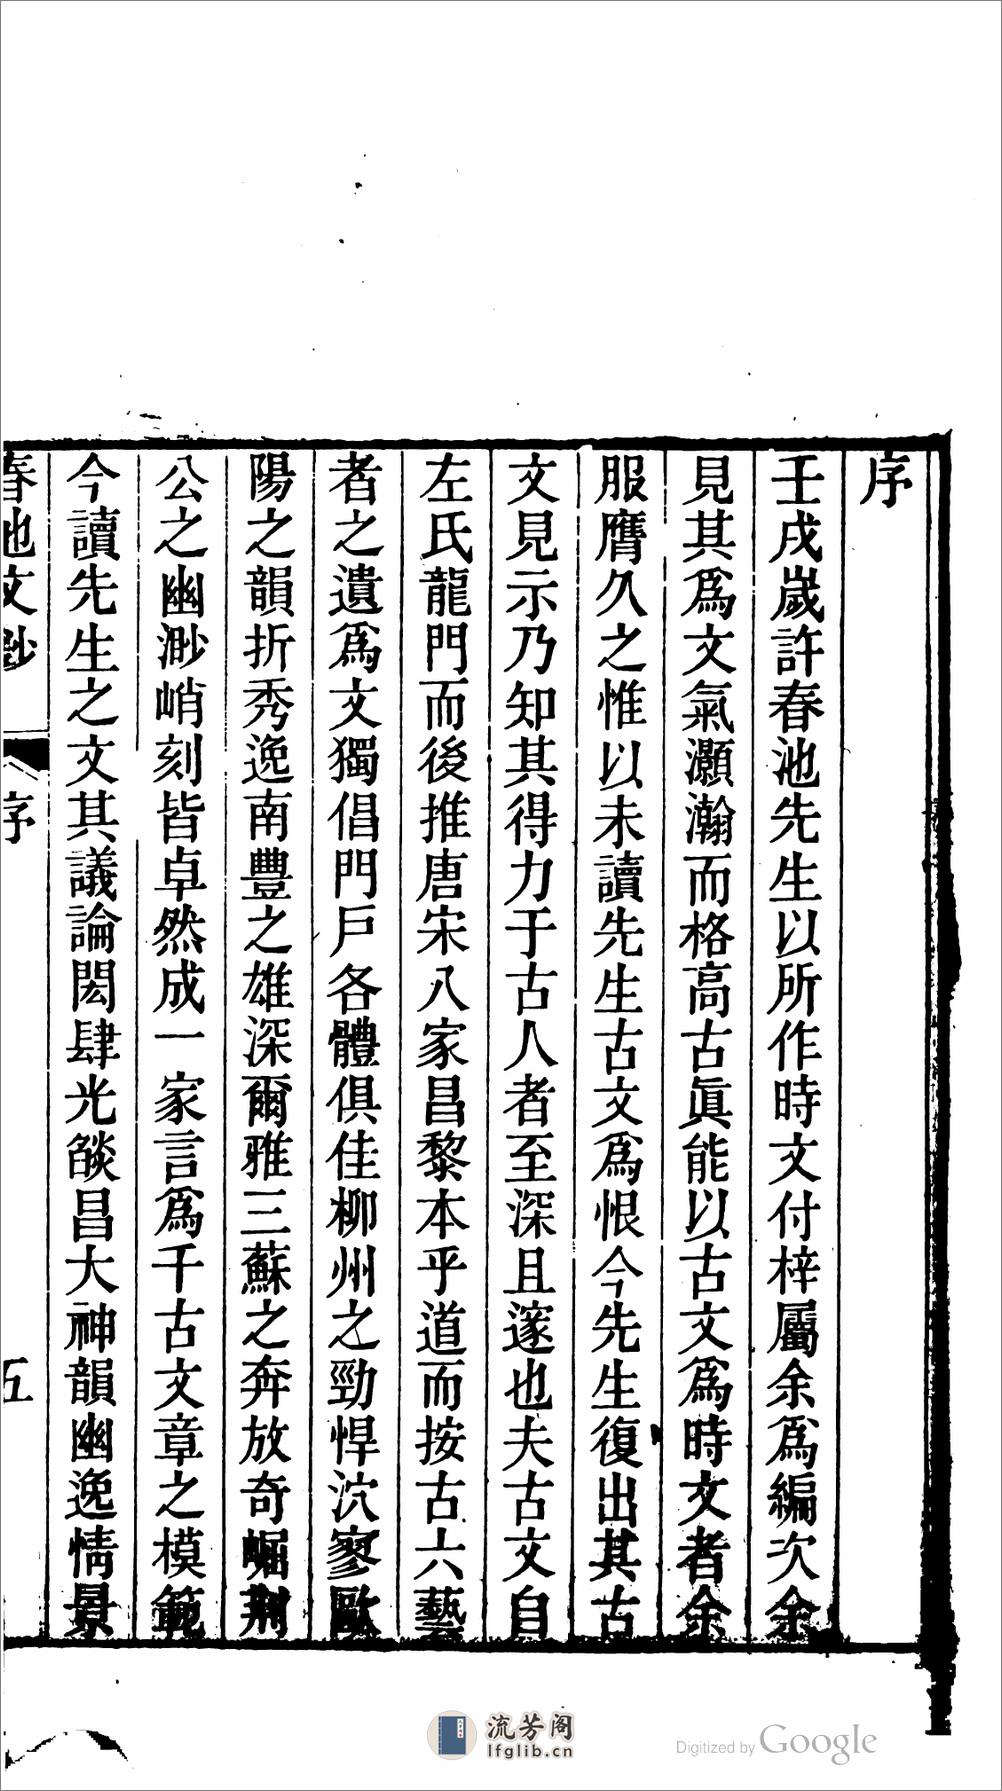 序
壬戌嵗許春池先生以所作時文付梓屬余爲編次余
見其爲文氣灝瀚而格高古眞能以古文爲時文者余
服膺久之惟以未讀先生古文爲恨今先生復出其古
文見示乃知其得力于古人者至深且邃也夫古文自
左氏龍門而後推唐宋八家昌黎本乎道而按古六藝
者之遺爲文獨倡門戸各體俱佳柳州之勁悍泬寥歐
陽之韻折秀逸南豐之雄深爾雅三蘇之奔放奇崛荆
公之幽渺峭刻皆卓然成一家言爲千古文章之模範
今讀先生之文其議論閎肆光燄昌大神韻幽逸情景
春池文鈔 序 五
流芳阁
lfglib.cn
Digitized by Google